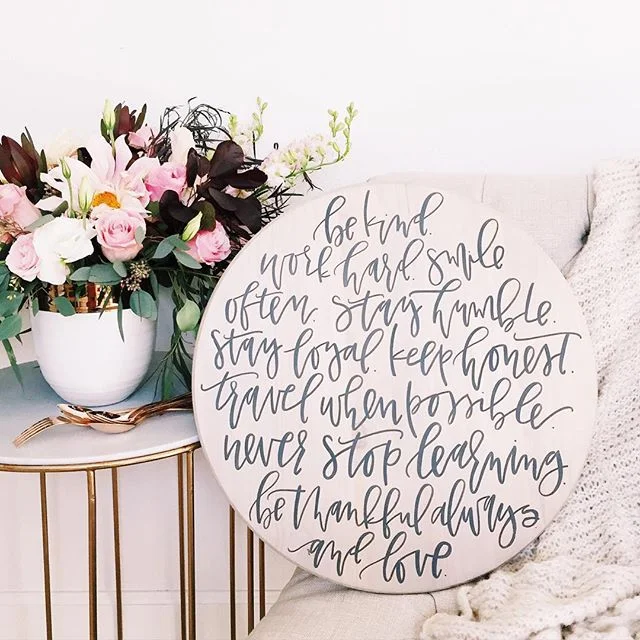 be kind.
work hard. smile
often. stay humble.
stay loyal. keep honest.
travel when possible.
never stop learning.
be thankful always
and love.